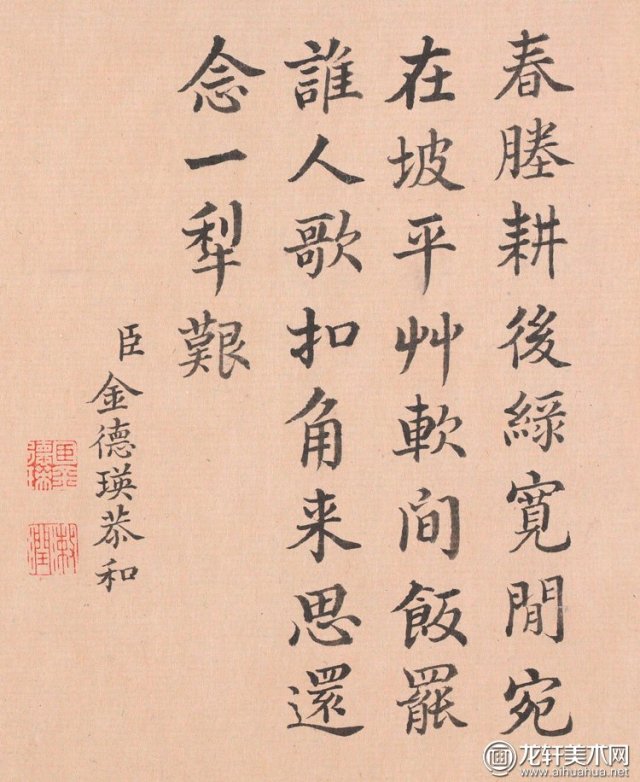 春塍耕後綠寬閒宛
在坡平艸軟間飯罷
誰人歌扣角来思還
念一犁艱
臣金德瑛恭和
臣金德瑛
漱潤
龙轩美术网
www.aihuahua.net